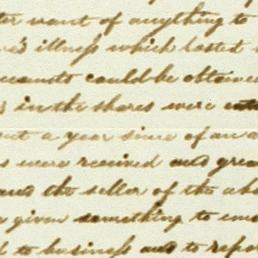 ter want of anything to
's illness which lasted
accounts could be obtained
s in the shares were
out a year since of an a
s were received and grea
and the seller of the abo
given something to
d to business and to repor